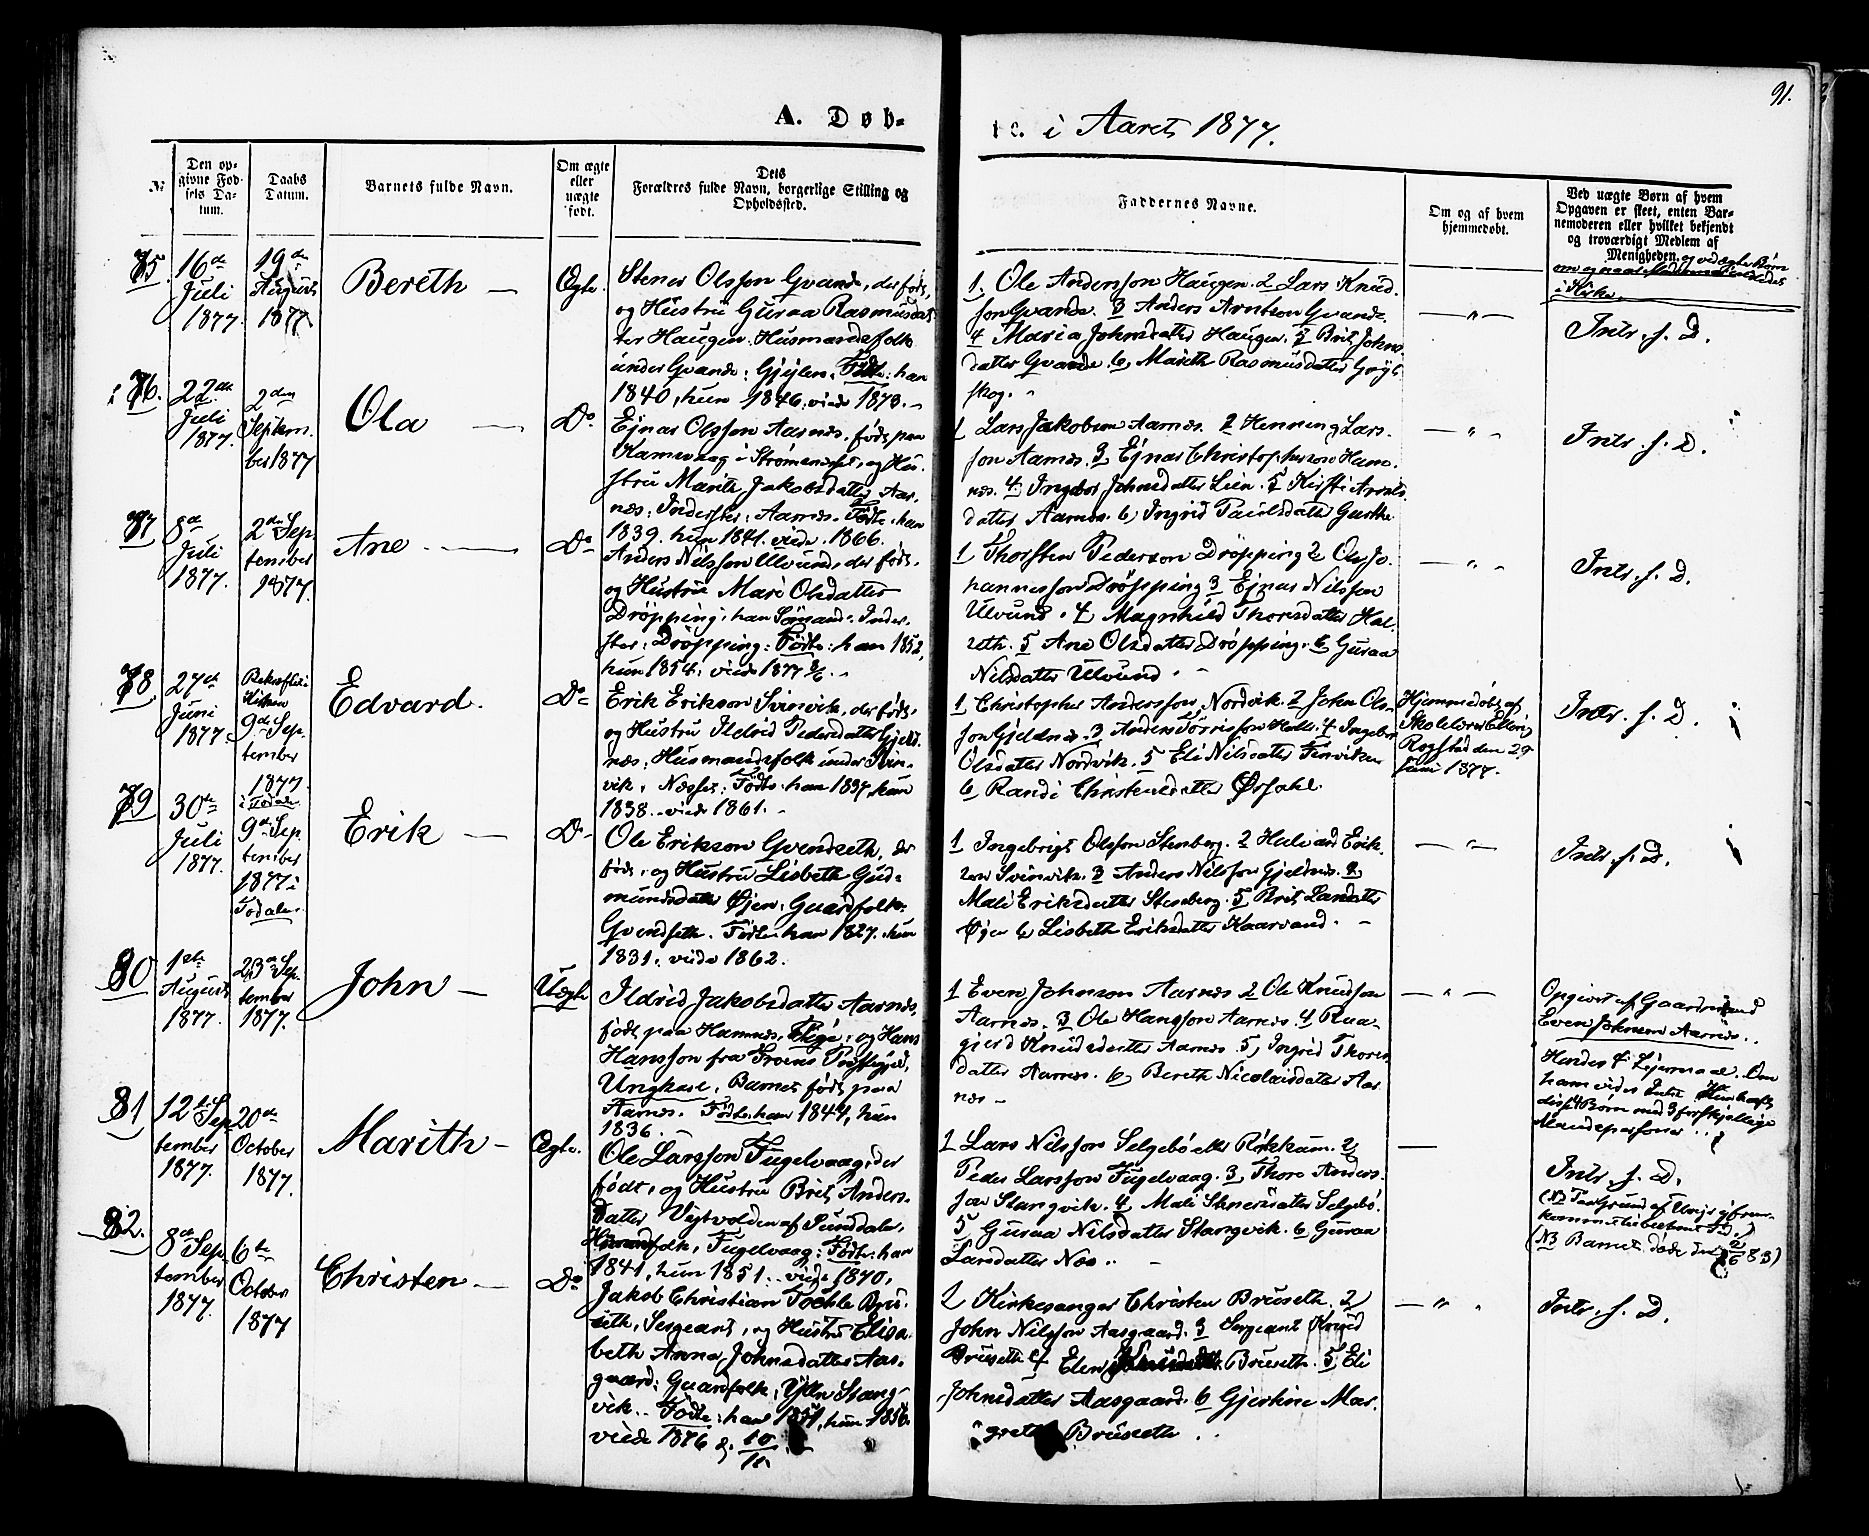 91.
A. Døb-
te. i Aaret 1877.
№
Den op-
givne Fød-
sels Da-
tum.
Daabs
Datum.
Barnets fulde Navn.
Om ægte
eller
uægte
født.
Dets
Forældres fulde Navn, borgerlige Stilling og
Opholdssted.
Faddernes Navne.
Om og af hvem
hjemmedøbt.
Ved uægte Børn af hvem
Opgaven er skeet, enten Bar-
nemoderen eller hvilket bekjendt
og troværdigt Medlem af
Menigheden. og ved ægte Børn
om og naar Moderen
i Kirke.
75.
16de
Juli
1877.
19de
August
1877
Bereth —
Ægte.
Stener Olsson Gvande, der født,
og Hustru Guraa Rasmusdat-
ter Haugen. Husmandsfolk
under Gvande: Gjejlen. Født: han
1840, hun 1846. viede 1873.
1. Ole Andersson Haugen. 2 Lars Knud-
son Gvande. 3 Anders Arntson Gvande.
4 Maria Johnsdatter Haugen. 5 Brit Johns-
datter Gvande. 6 Marith Rasmusdatter
skog.
— " —
Intr. f. D.
76.
22de
Juli
1877.
2den
Septem-
ber 1877
Ola —
Do
Ejnar Olsson Aarnes, født paa
i Strømm, og Hu-
stru Marith Jakobsdatter Aar-
næs: Inderster: Aarnes. Født: han
1839. hun 1841. viede 1866.
1 Lars Jakobson Aarnes. 2 Henning Lars-
son Aarnes. 3 Ejnar Christopherson Ham-
nes. 4 Ingebor Johnsdatter Lien. 5 Kirsti Arnts-
datter Aarnes. 6 Ingrid Paulsdatter
— " —
Intr. f. D.
77
8de
Juli
1877.
2de Sep-
tember
1877.
Ane —
Do
Anders Nilsson Ulvund, der født,
og Hustru Mari Olsdatter
Drøpping: han Sømand: Inder-
ster: Drøpping: Født: han 1852,
hun 1854: viede 1877
1 Thorsten Pederson Drøpping 2 Ole Jo-
hannesson Drøpping 3 Ejnar Nilsson
Ulvund. 4 Magnhild Thorsdatter Hal-
seth. 5 Ane Olsdatter Drøpping. 6 Guraa
Nilsdatter Ulvund.
— " —
Intr. f. D.
78
27de
Juni
1877.
i
Kirken
9de Sep-
tember
1877
i Todalen
Edvard.
Do
Erik Erikson Svinvik, der født,
og Hustru Ildrid Pedersdatter Gjeld-
næs: Husmandsfolk under Svin-
vik, Næsset: Født: han 1837, hun
1838. viede 1861.
1 Christopher Andersson Nordvik. 2 John Ols-
son Gjeldnes. 3 Anders Torrisson Halle. 4 Ingebor
Olsdatter Nordvik. 5 Eli Nilsdatter
6 Randi Christensdatter Ørsahl.
Hjemmedøbt af
Skolelærer
Rogstad den 29
Juni 1877.
Intr. f. D.
79
30te
Juli
1877.
9de Sep-
tember
1877 i
Todalen.
Erik —
Do
Ole Erikson Gvendseth, der
født, og Hustru Lisbeth Gud-
mundsdatter Øjen: Gaardfolk:
Gvendseth. Født: han 1827. hun
1831. viede 1862.
1 Ingebrigt Olsson Stenberg. 2 Halvard Erik-
son Svinvik. 3 Anders Nilsson Gjeldnes. 4
Mali Eriksdatter Stenberg. 5 Brit Larsdatter
Øjen 6 Lisbeth Eriksdatter Kaarvand.
— " —
Intr. f. D.
80
1ste
August
1877.
23de Sep-
tember
1877.
John —
Uægte
Ildrid Jakobsdatter Aarnes,
født paa Hamnes, Pige: og Hans
Hansson fra Præstegjeld,
Ungkarl, Barnet født paa
Aarnes. Født: han 1844, hun
1836.
1 Even Johnson Aarnes 2 Ole Knudson
Aarnes. 3 Ole Hansson Aarnes. 4 Rua-
gjerd Knudsdatter Aarnes. 5, Ingrid Thores-
datter Aarnes. 6 Bereth Nicolaisdatter Aar-
nes —
— " —
Opgivet af Gaardmand
Even Johnson Aarnes.
Hendes 4 Lejermaal. Om
ham vides Intet. Hun
disse 4 Børn med 3 forskjellige
Mandspersoner.
81
12te Sep-
tember
1877.
20de
October
1877.
Marith —
Ægte.
Ole Larsson Fugelvaag, der
født, og Hustru Brit Anders-
datter Vejtvolden af Sundalen.
folk, Fugelvaag: Født: han
1841, hun 1851. viede 1870.
1 Lars Nilsson Selgebø eller Røkkum. 2
Peder Larsson Fugelvaag. 3 Thore Anders-
son Stangvik. 4 Mali Stenersdatter Selgebø.
5 Guraa Nilsdatter Stangvik. 6 Guraa
Larsdatter Noe.
—
Intr. f. D.
(NB Barnet døde den 83)
82.
8de Sep-
tember
1877.
6te
October
1877
Christen —
Do
Jakob Christian Bru-
seth, Sergeant, og Hustru Elisa-
beth Anna Johnsdatter Aas-
gaard: Gaardfolk: Ytre Stang-
vik. Født: han 1851, hun 1856.
viede 1876 d. 10/11.
1 Kirkesanger Christen Bruseth. 2
John Nilsson Aasgaard. 3 Sergeant Knud
Bruseth 4 Elen Bruseth. 5 Eli
Johnsdatter Aasgaard. 6 Gjertine Mar-
grete Bruseth.
— " —
Intr. f. D.